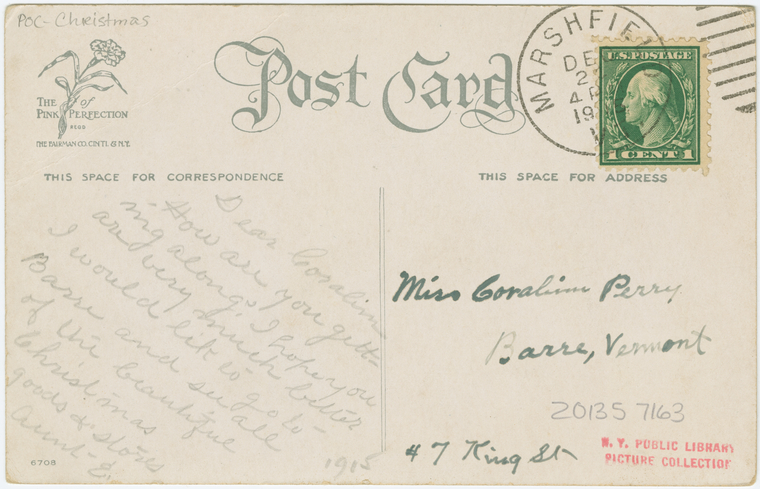 POC- Christmas
THE of
PINK PERFECTION
REGD
THE FAIRMAN CO. CIN'TI. & N.Y.
Post Card
MARSHFIE
DE
2
4 P
19
U.S. POSTAGE
1 CENT 1
THIS SPACE FOR CORRESPONDENCE
THIS SPACE FOR ADDRESS
Dear Coralin
How are you gett-
ing along, I hope you
are very much better
I would like to go to
Barre and see all
of the beautiful
Christmas
goods & stores
Aunt - E.
1915
Miss Coralinn Perry
Barre, Vermont
20135 7163
# 7 King St
N. Y. PUBLIC LIBRARY
PICTURE COLLECTION
6708